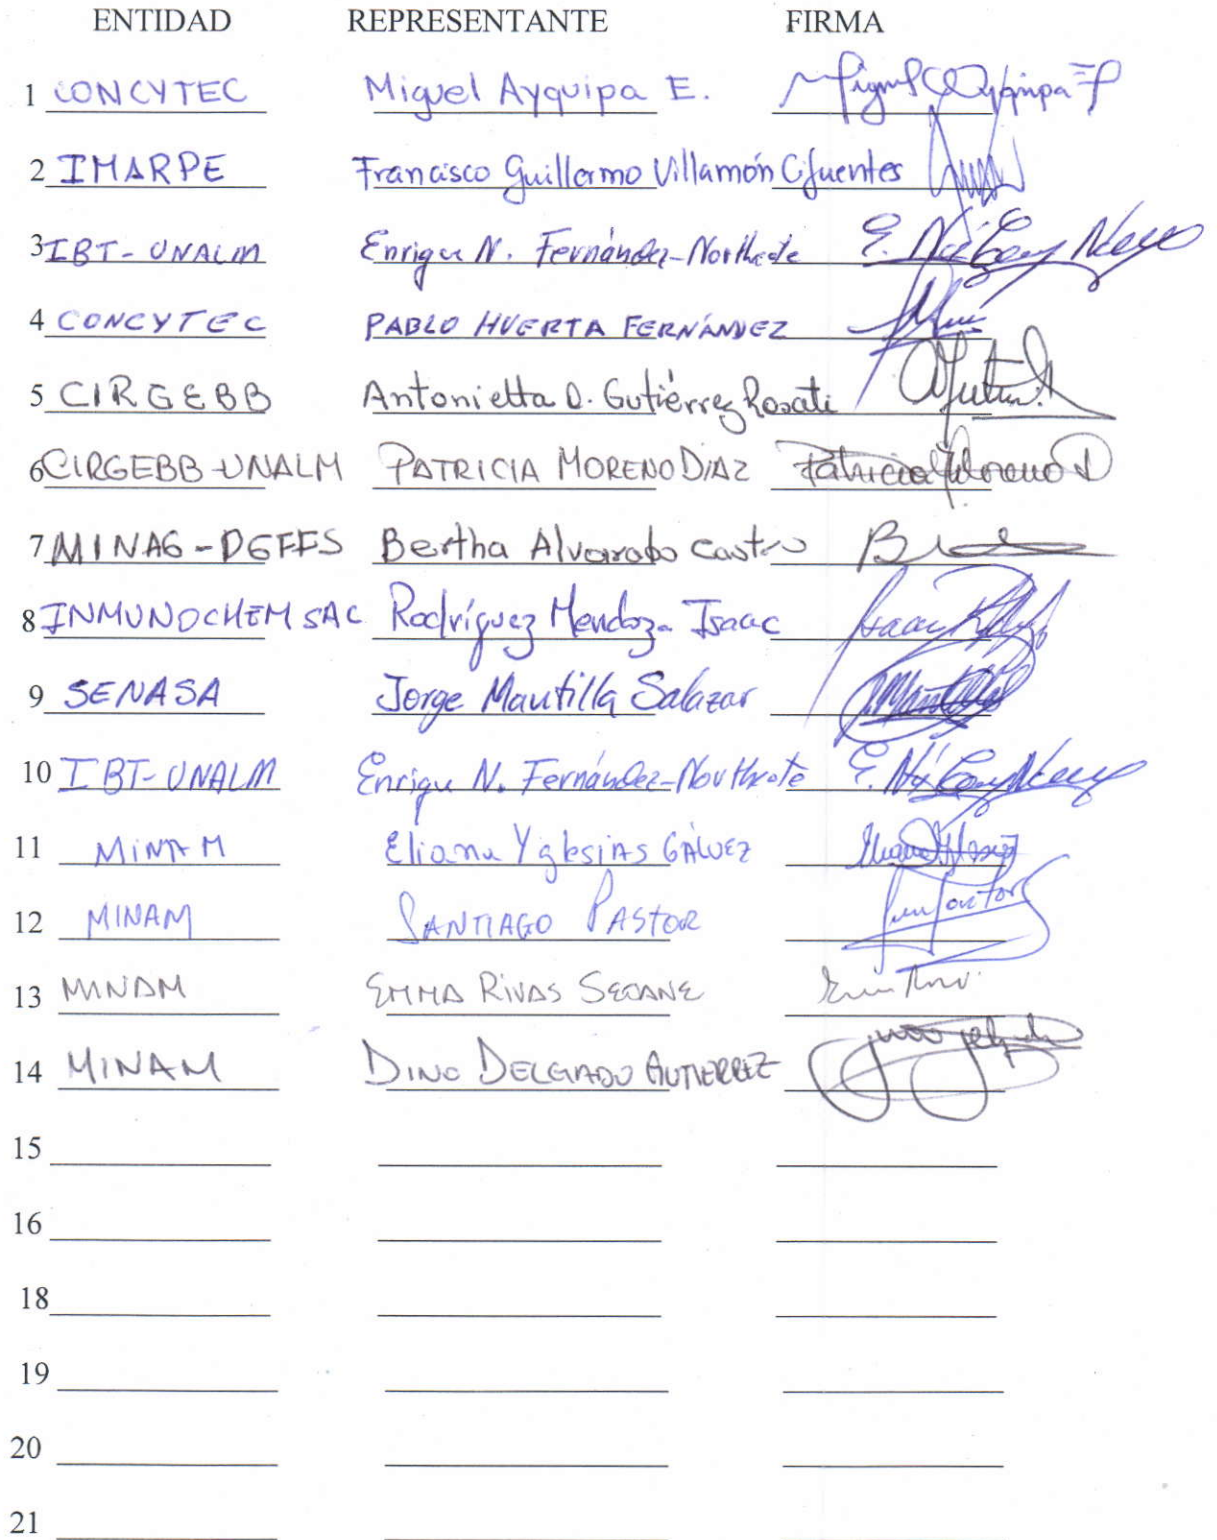 ENTIDAD REPRESENTANTE FIRMA
1 CONCYTEC Miguel Ayquipa E. Miguel Ayquipa E
2 IMARPE Francisco Guillermo Villamón Cifuentes
3 IBT-UNALM Enrique N. Fernández-Northcote
4 CONCYTEC PABLO HUERTA FERNÁNDEZ
5 CIRGEBB Antonietta O. Gutiérrez Rosati
6 CIRGEBB-UNALM PATRICIA MORENO DIAZ Patricia Moreno D
7 MINAG-DGFFS Bertha Alvarado Castro
8 INMUNOCHEM SAC Rodríguez Mendoza Isaac
9 SENASA Jorge Mautilla Salazar
10 IBT-UNALM Enrique N. Fernández-Northcote
11 MINAM Eliana Yglesias GÁLVEZ
12 MINAM SANTIAGO PASTOR
13 MINAM EMMA RIVAS SEOANE
14 MINAM DINO DELGADO GUTIERREZ
15
16
18
19
20
21